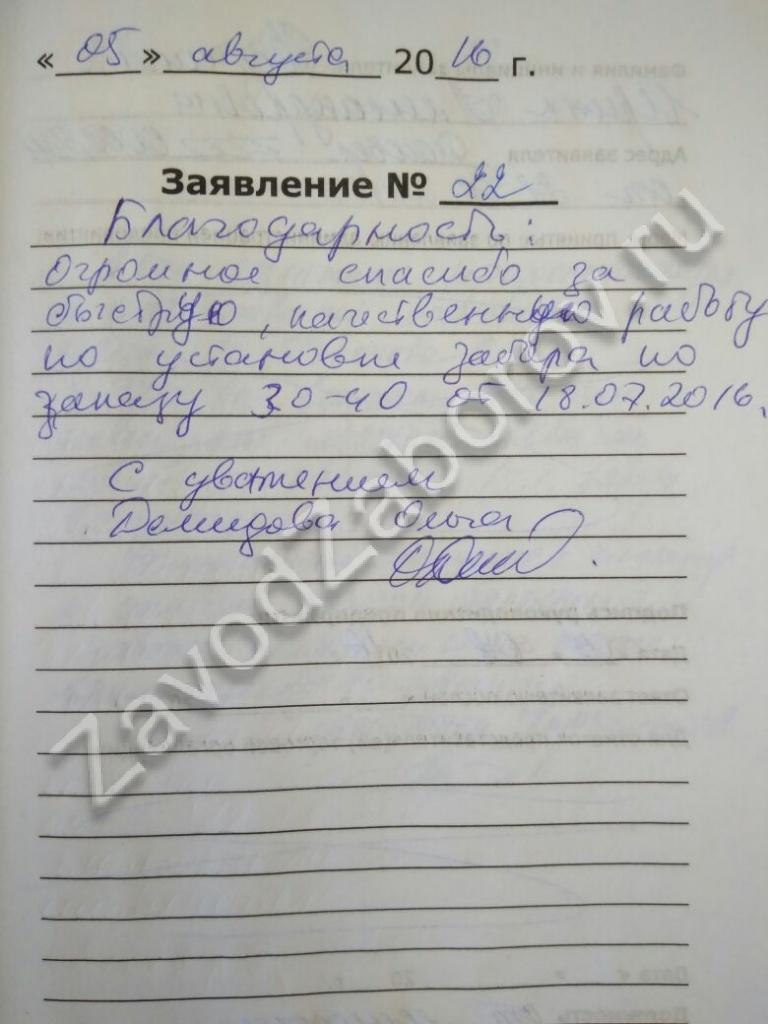 «05» августа 2016 г.
Заявление № 22
Благодарность:
Огромное спасибо за
быструю, качественную работу
по установке забора по
заказу 30-40 от 18.07.2016.
С уважением
Демидова Ольга
ZavodZaborov.ru